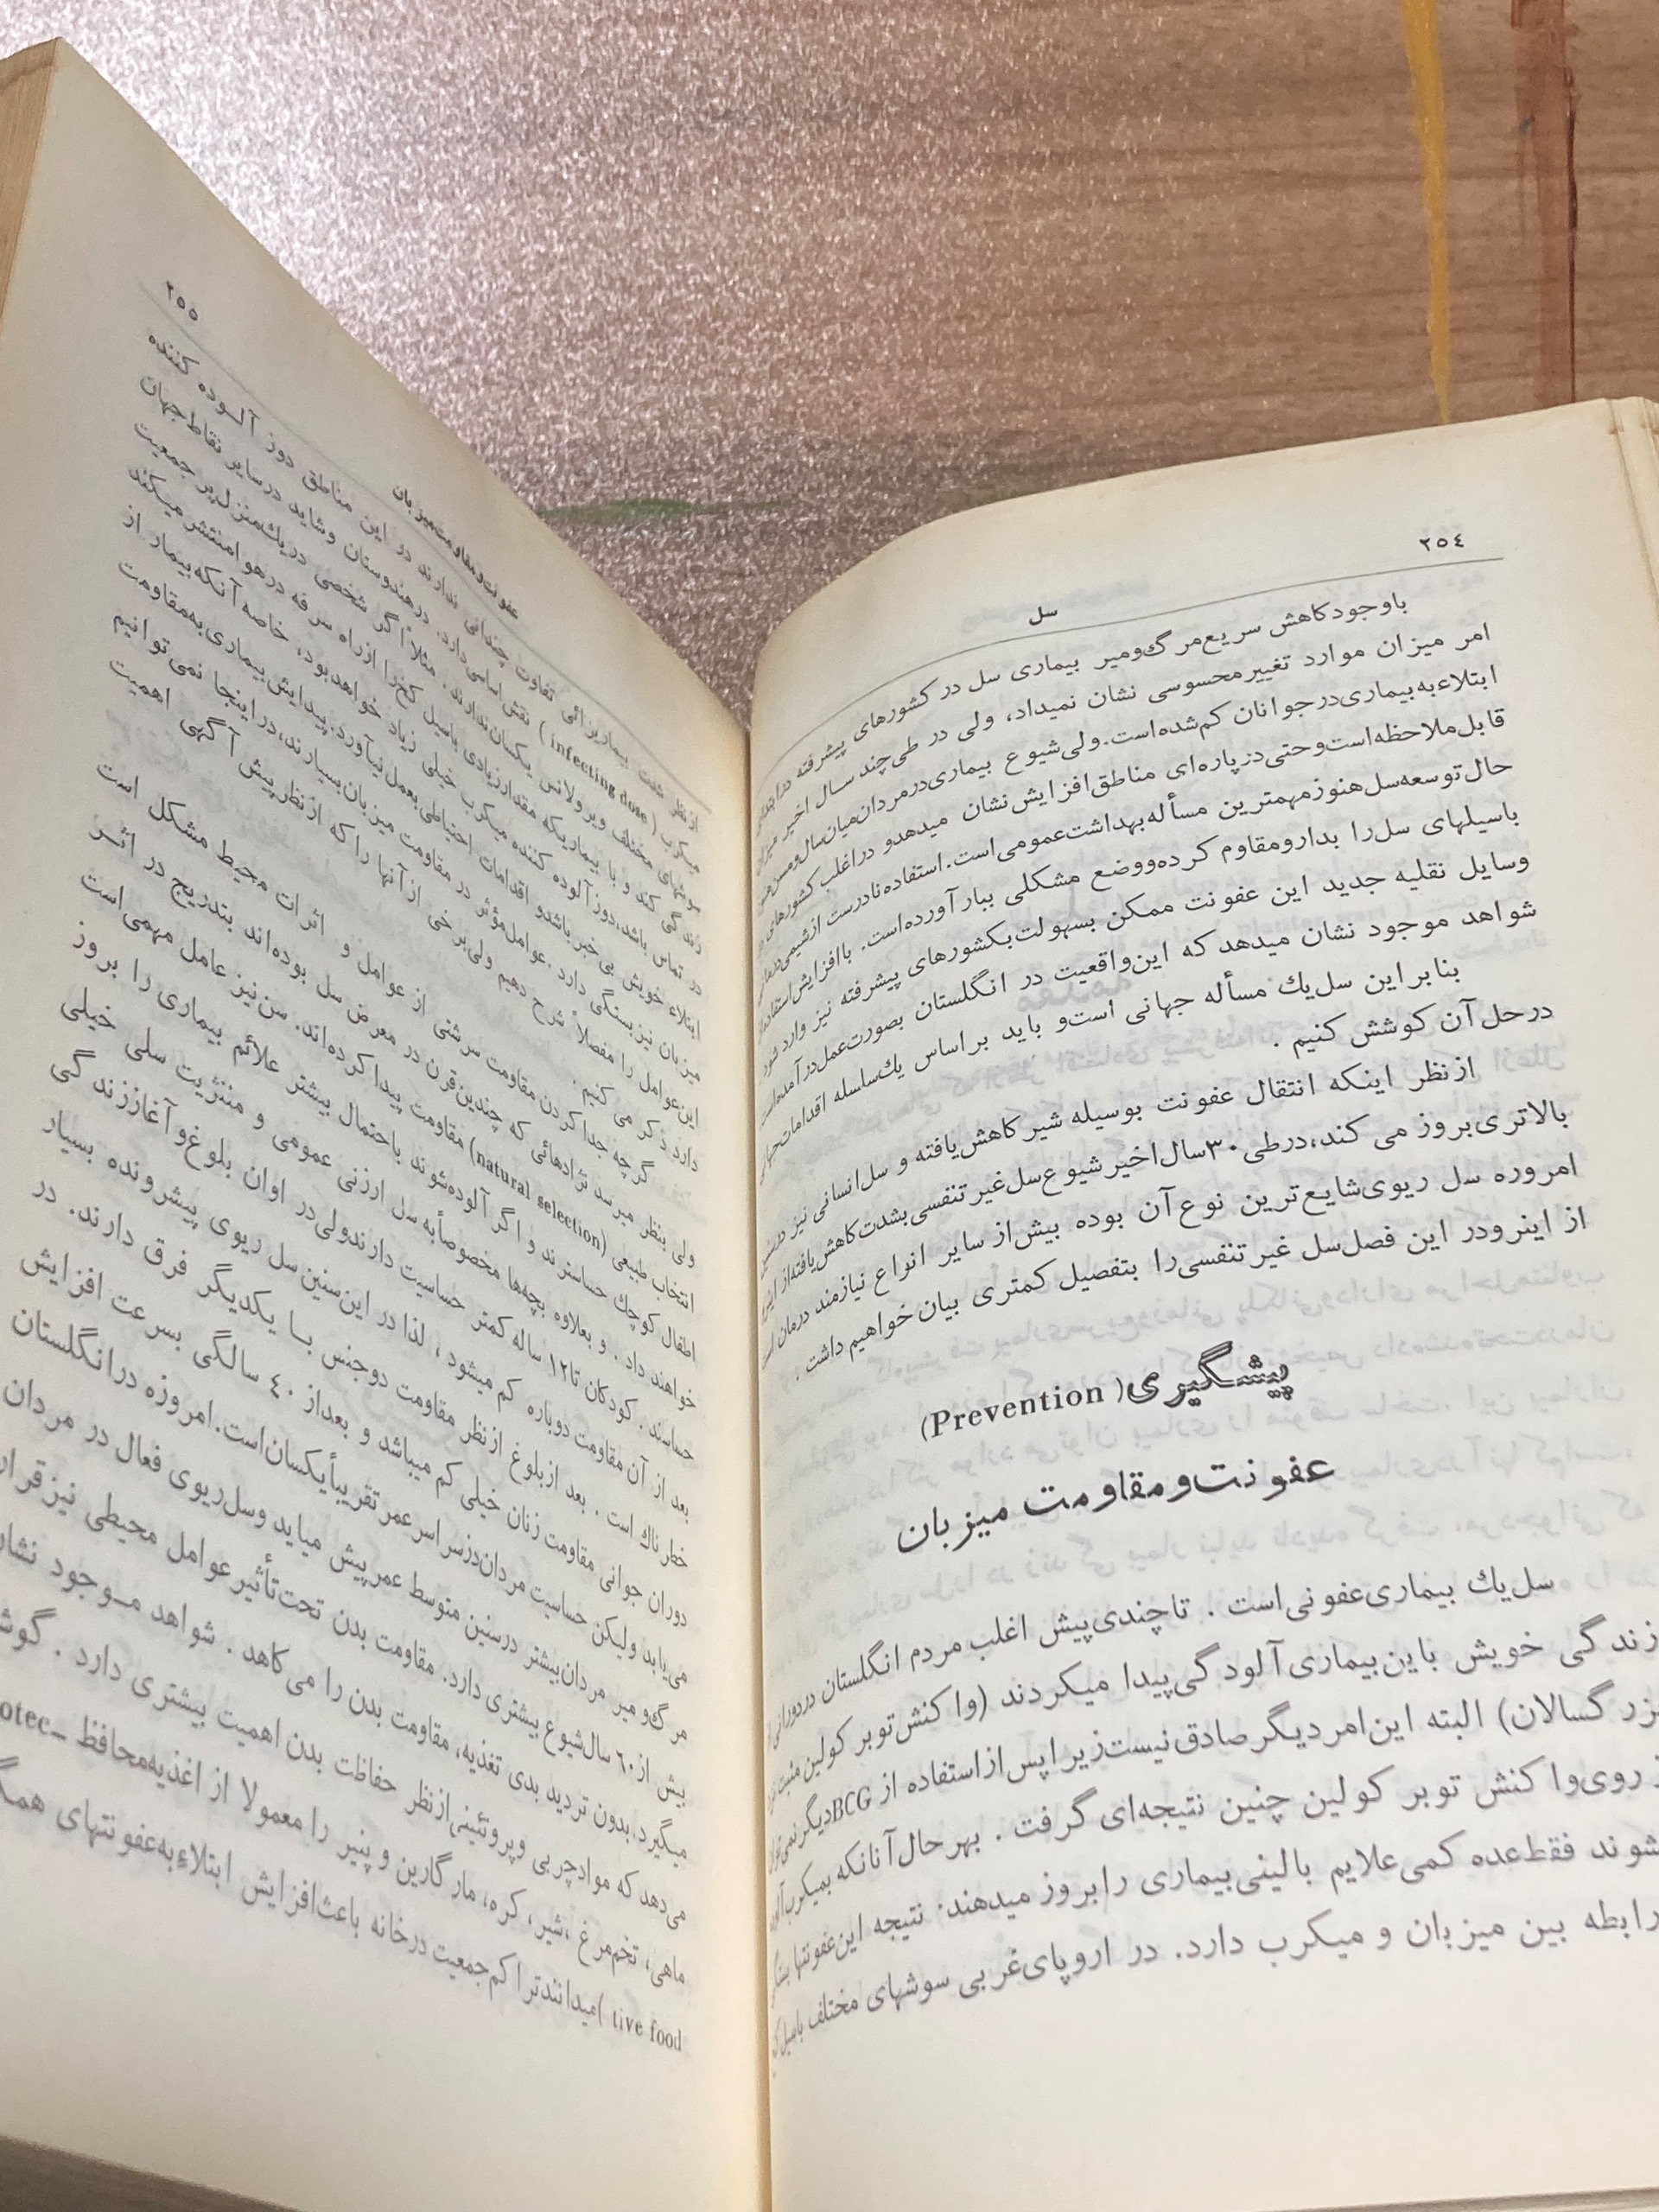 ۲۵٤
سل
باوجود کاهش سریع مرگ‌ومیر بیماری سل در کشورهای پیشرفته در
امر میزان موارد تغییر محسوسی نشان نمیداد، ولی در طی چند سال اخیر میزان
ابتلاء به بیماری در جوانان کم شده است. ولی شیوع بیماری در مردان میان‌سال و مسن
قابل ملاحظه است و حتی در پاره‌ای مناطق افزایش نشان میدهد و در اغلب کشورهای
حال توسعه سل هنوز مهمترین مسأله بهداشت عمومی است. استفاده نادرست از شیمی
باسیلهای سل را بدارو مقاوم کرده و وضع مشکلی ببار آورده است. با افزایش استفاده
وسایل نقلیه جدید این عفونت ممکن بسهولت بکشورهای پیشرفته نیز وارد شود
شواهد موجود نشان میدهد که این واقعیت در انگلستان بصورت عمل در آمده
بنابراین سل یك مسأله جهانی است و باید بر اساس یك سلسله اقدامات
در حل آن کوشش کنیم .
از نظر اینکه انتقال عفونت بوسیله شیر کاهش یافته و سل انسانی نیز در
بالاتری بروز می کند، در طی ۳۰ سال اخیر شیوع سل غیر تنفسی بشدت کاهش یافته از
امروزه سل ریوی شایع‌ترین نوع آن بوده بیش از سایر انواع نیازمند درمان
از اینرو در این فصل سل غیر تنفسی را بتفصیل کمتری بیان خواهیم داشت .
پیشگیری (Prevention)
عفونت و مقاومت میزبان
سل یك بیماری عفونی است . تا چندی پیش اغلب مردم انگلستان در دورانی
زندگی خویش باین بیماری آلودگی پیدا میکردند (واکنش توبرکولین مثبت
بزرگسالان) البته این امر دیگر صادق نیست زیرا پس از استفاده از BCG دیگر نمی
روی واکنش توبرکولین چنین نتیجه‌ای گرفت . بهر حال آنانکه بمیکرب
شوند فقط عده کمی علایم بالینی بیماری را بروز میدهند. نتیجه این عفونتها
رابطه بین میزبان و میکرب دارد. در اروپای غربی سوشهای مختلف باسیل
۲۵۵
عفونت و مقاومت میزبان
از نظر شدت بیماریزائی تفاوت چندانی ندارند در این مناطق دوز آلوده کننده
میکرب ( infecting dose ) نقش اساسی دارد. در هندوستان و شاید در سایر نقاط جهان
سوشهای مختلف ویرولانس یکسان ندارند . مثلاً اگر شخصی در یك منزل پر جمعیت
زندگی کند و با بیماریکه مقدار زیادی باسیل کخ را از راه سرفه در هوا منتشر میکند
در تماس باشد، دوز آلوده کننده میکرب خیلی زیاد خواهد بود، خاصه آنکه بیمار از
ابتلاء خویش بی خبر باشد و اقدامات احتیاطی بعمل نیآورد. پیدایش بیماری به مقاومت
میزبان نیز بستگی دارد . عوامل مؤثر در مقاومت میزبان بسیارند، در اینجا نمی توانیم
این عوامل را مفصلاً شرح دهیم ولی برخی از آنها را که از نظر پیش آگهی اهمیت
دارد ذکر می کنیم .
گرچه جدا کردن مقاومت سرشتی از عوامل و اثرات محیط مشکل است
ولی بنظر میرسد نژادهائی که چندین قرن در معرض سل بوده‌اند بتدریج در اثر
انتخاب طبیعی (natural selection) مقاومت پیدا کرده‌اند. سن نیز عامل مهمی است
اطفال کوچك حساسترند و اگر آلوده شوند با احتمال بیشتر علائم بیماری را بروز
خواهند داد . و بعلاوه بچه‌ها مخصوصاً به سل ارزنی عمومی و مننژیت سلی خیلی
حساسند . کودکان تا ۱۲ ساله کمتر حساسیت دارند ولی در اوان بلوغ و آغاز زندگی
بعد از آن مقاومت دوباره کم میشود ، لذا در این سنین سل ریوی پیشرونده بسیار
خطرناك است . بعد از بلوغ از نظر مقاومت دو جنس با یکدیگر فرق دارند. در
دوران جوانی مقاومت زنان خیلی کم میباشد و بعد از ٤۰ سالگی بسرعت افزایش
می‌یابد ولیکن حساسیت مردان در سراسر عمر تقریباً یکسان است. امروزه در انگلستان
مرگ و میر مردان بیشتر در سنین متوسط عمر پیش میاید و سل ریوی فعال در مردان
بیش از ٦۰ سال شیوع بیشتری دارد. مقاومت بدن تحت تأثیر عوامل محیطی نیز قرار
میگیرد. بدون تردید بدی تغذیه، مقاومت بدن را می‌کاهد . شواهد موجود نشان
می‌دهد که مواد چربی و پروتئینی از نظر حفاظت بدن اهمیت بیشتری دارد . گوشت
ماهی، تخم مرغ ،شیر، کره، مارگارین و پنیر را معمولا از اغذیه محافظ otec-
tive food) میدانند تراکم جمعیت در خانه باعث افزایش ابتلاء به عفونتهای